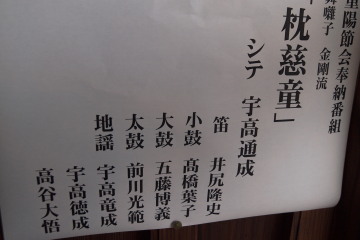 重陽節会奉納番組
舞囃子 金剛流
枕慈童」
シテ 宇高通成
笛 井尻隆史
小鼓 髙橋葉子
大鼓 五藤博義
太鼓 前川光範
地謡 宇高竜成
宇高徳成
高谷大悟